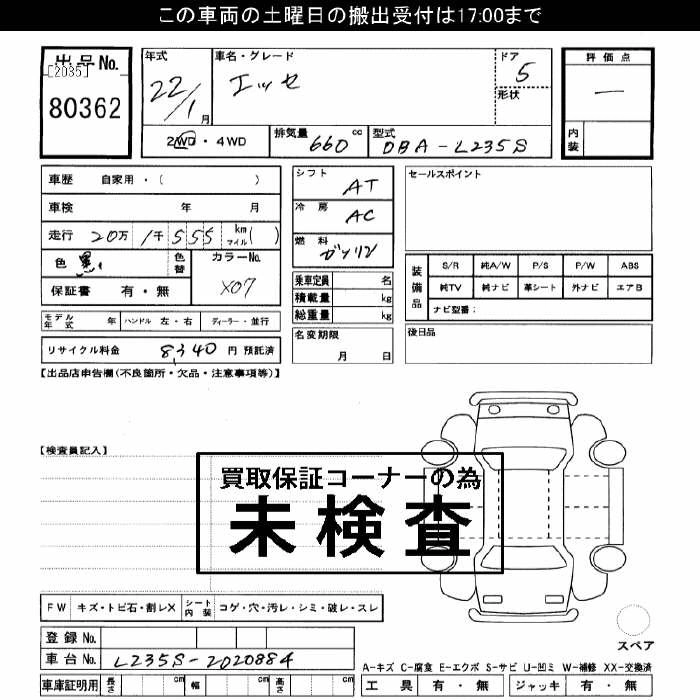 この車両の土曜日の搬出受付は17:00まで
出品No.
[2035]
80362
年式
22/1月
車名・グレード
エッセ
ドア
5
形状
評価点
―
内装
2WD・4WD
排気量 660 cc
型式 DBA-L235S
車歴 自家用・( )
車検 年 月
走行 20万1千555 km マイル( )
色 黒
色替
カラーNo.
X07
保証書 有・無
モデル年式 年 ハンドル 左・右 ディーラー・並行
リサイクル料金 8,340 円 預託済
シフト AT
冷房 AC
燃料 ガソリン
乗車定員 名
積載量 kg
総重量 kg
名変期限
月 日
セールスポイント
装備品
S/R 純A/W P/S P/W ABS
純TV 純ナビ 革シート 外ナビ エアB
ナビ型番:
後日品
【出品店申告欄(不良箇所・欠品・注意事項等)】
【検査員記入】
買取保証コーナーの為
未検査
FW キズ・トビ石・割レX シート内装 コゲ・穴・汚レ・シミ・破レ・スレ
スペア
登録No.
車台No. L235S-2020884
A-キズ C-腐食 E-エクボ S-サビ U-凹ミ W-補修 XX-交換済
車庫証明用 長さ cm 幅 cm 高さ cm
工具 有・無 ジャッキ 有・無